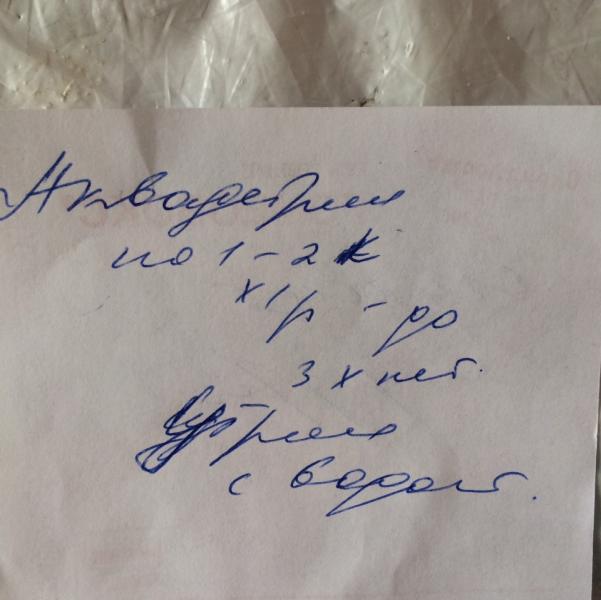 Аквадетрим
по 1-2 к
х 1 р - до
3 х лет.
Утром
с водой.